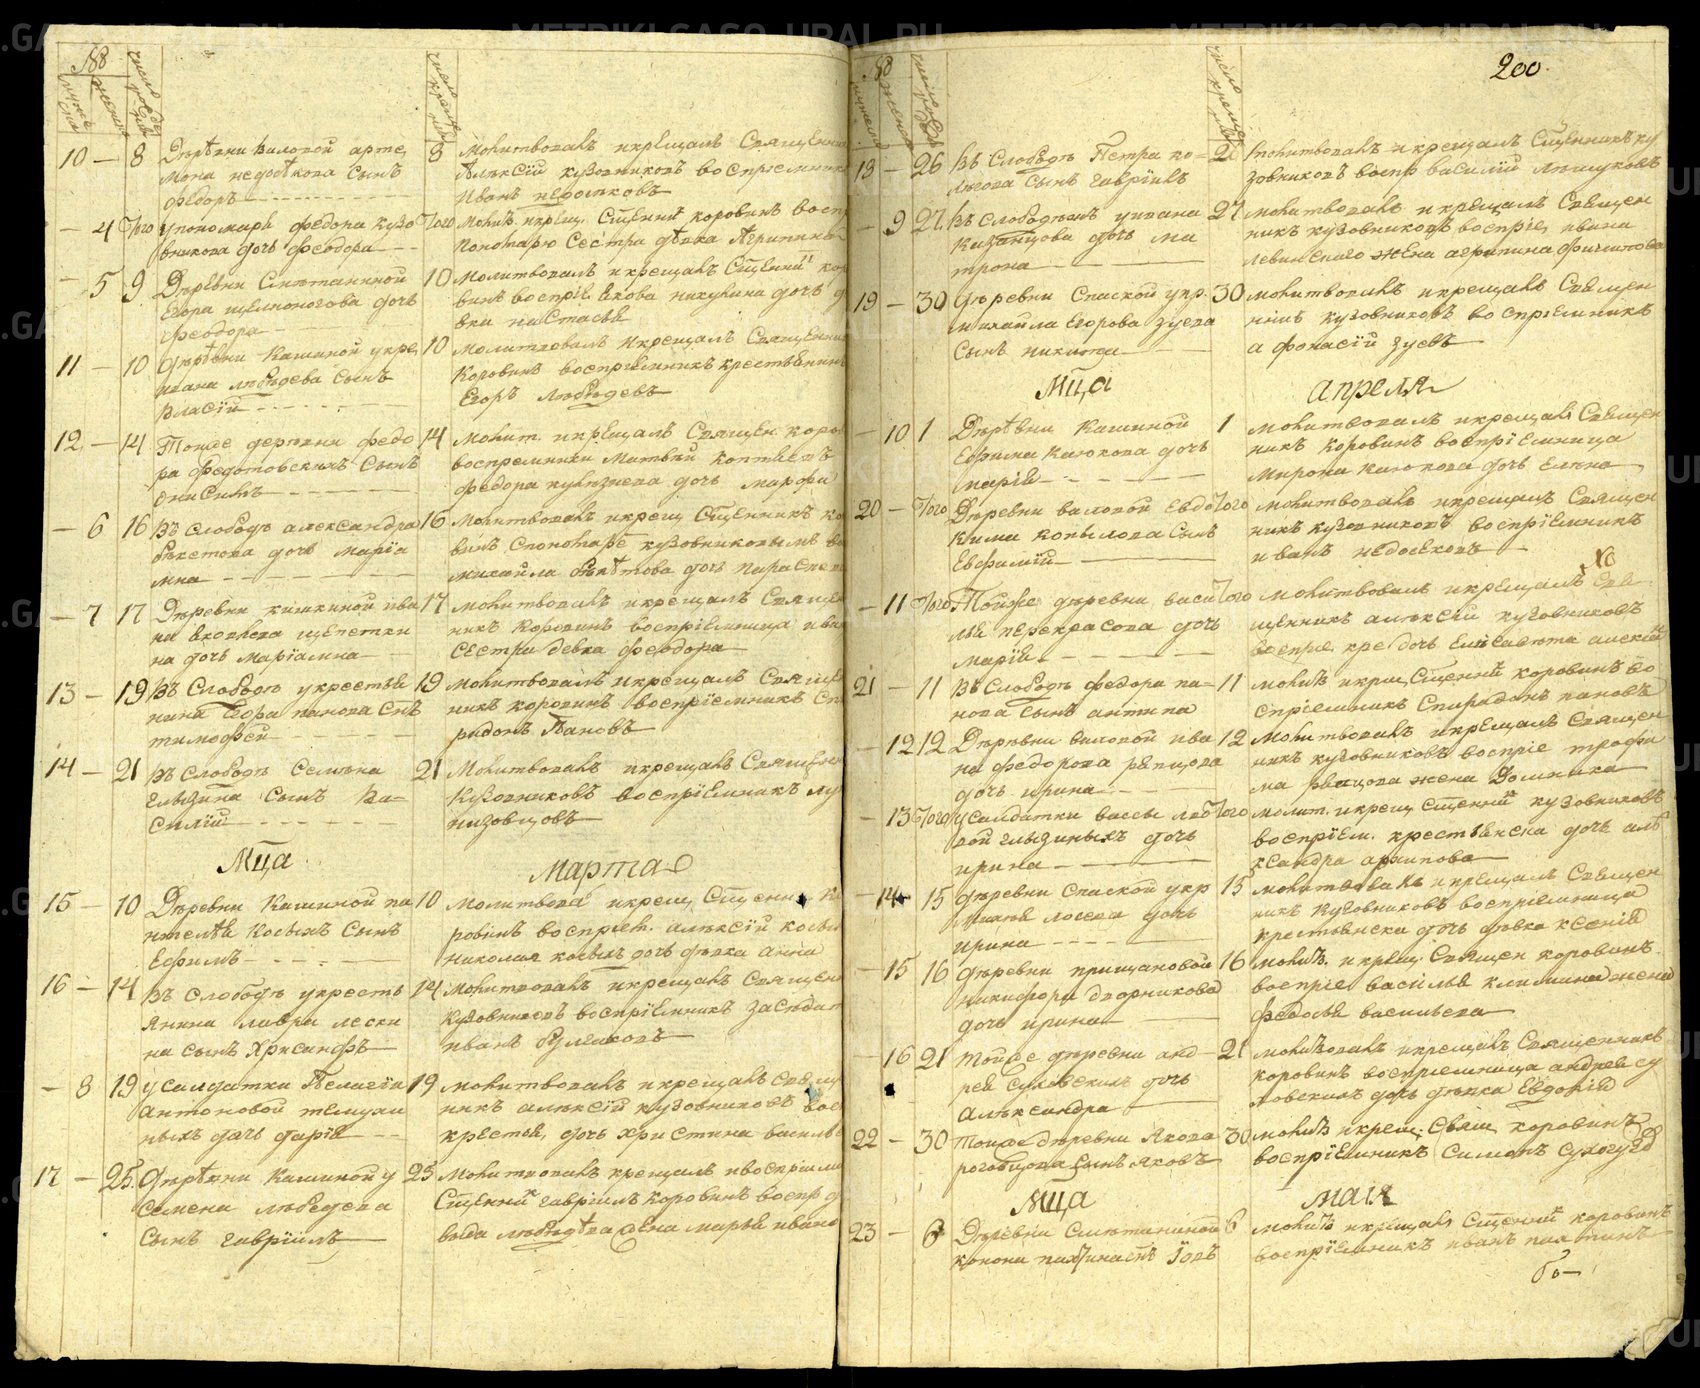 №№
мужеска
женска
число рожде ния
число креще ния
10 — 8 Дѣрѣвни Валовой арте
мона недосѣкова сынъ
федоръ
8 молитвовалъ икрещалъ Священни
Алѣксiй кузовниковъ воспрiемникъ
Иванъ недосѣковъ
— 4 того упономаря федора кузо
вникова дочь феодора
того молит. икрещ. Сщеннй коровинъ восп
пономарю Сестра дѣвка Агрипина
— 5 9 Дѣрѣвни Смѣтаниной
Егора щелконогова дочь
феодора
10 молитвовалъ икрещалъ Сщеннй кор
винъ воспрiе Якова никулина дочь д
вка наСтасья
11 — 10 дѣрѣвни Кашиной укре
ивана лѣбѣдева Сынъ
власiй
10 молитвовалъ икрещалъ Священни
Коровинъ воспрiемникъ крестьянинъ
Егоръ лѣбѣдевъ
12 — 14 Тоже деревни федо
ра федотовскихъ Сынъ
онисимъ
14 молит. икрещалъ Священ коров
воспремники Матвѣй коптяевъ
федора кузнецова дочь марфа
— 6 16 Въ Слободѣ александра
бѣкетова дочь марiа
мна
16 Молитвовалъ икрещ Сщенникъ ко
винъ Спономарѣ кузовниковымъ во
михайла бѣкѣтова дочь параске
— 7 17 Дѣревни кашкиной ива
на Яковлева щепетки
на дочь марiамна
17 молитвовалъ икрещалъ Священ
никъ Коровинъ воспрiемница ива
сестра девка феодора
13 — 19 Въ Слободѣ укрестья
нина Егора панова Снъ
тимофей
19 молитвовалъ икрещалъ Священ
никъ коровинъ воспрiемникъ Спи
ридонъ Пановъ
14 — 21 Въ Слободѣ Семѣна
глызина Сынъ Ва-
силiй
21 Молитвовалъ икрещалъ Священ
Кузовниковъ воспрiемникъ лу
низовцовъ
Мца марта
15 — 10 Дѣревни Кашиной па
нтелѣя Косыхъ Сынъ
Ефимъ
10 молитвова икрещ Сщенни ко
ровинъ воспрiем. алѣксiй косы
николая косыхъ дочь дѣвка анна
16 — 14 Въ Слободѣ укресть
янина лавра лески
на сынъ Хрисанфъ
14 молитвовалъ икрещалъ Священ
Кузовниковъ воспрiемникъ засѣдат
иванъ булгаковъ
— 8 19 у салдатки Пелагiи
антоновой темули
ныхъ дочь дарiя
19 молитвовалъ икрещалъ Свящ
никъ алѣксiй кузовниковъ вос
крестья, дочь христина василь
17 — 25. дѣрѣвни Кашиной у
Семена лѣбѣдева
Сынъ гаврiилъ
25 молитвовалъ крещалъ ивоспрiима
Сщеннй гаврiилъ коровинъ воспр д
выда лѣбѣдѣва жена марья ивано
200
№№
мужеска
женска
число рожде
число креще
18 — 26 Въ Слободѣ Петра ко-
лягова сынъ гаврiилъ
26 молитвовалъ и крещалъ Сщенникъ ку
зовниковъ воспр василiй ляпуковъ
— 9 27 Въ Слободѣ у ивана
Казанцова дочь ма
трона
27 молитвовалъ и крещалъ Священ
никъ кузовниковъ воспрiе, ивана
левинскаго жена агрипина филипова
19 — 30 дѣревни Спаской укр.
михаила Егорова зуева
сынъ никита
30 молитвовалъ икрещалъ Священ
никъ кузовниковъ воспрiемникъ
афонасiй зуевъ
Мца апреля
— 10 1 Дѣрѣвни Кашиной
Ефима Казакова дочь
марiя
1 молитвовалъ икрещалъ Священ
никъ коровинъ воспрiемница
мирона казакова дочь елена
20 — того Дѣревни валовой Евдо
кима копылова Сынъ
Евфимiй
того молитвовалъ икрещалъ Священ
никъ кузовниковъ воспрiемникъ
иванъ недосековъ
— 11 того Тойже дѣревни васи
лья некрасова дочь
марiя
того молитвовалъ икрещалъ Свя
щенникъ алѣксiй кузовниковъ
воспрiе, кре дочь Елисавета алексiй
21 — 11 Въ Слободѣ федора па-
нова сынъ антипа
11 молитъ икрщ Сщеннй коровинъ во
спрiемникъ Спиридонъ пановъ
— 12 12 Дѣрѣвни валовой ива
на федорова рѣпцова
дочь ирина
12 Молитвовалъ икрещалъ Священ
никъ кузовниковъ воспрiе трофи
ма рѣпцова жена Домника
— 13 того усалдатки вассы лво
вой глызиныхъ дочь
ирина
того молит. икрещ Сщеннй кузовниковъ
воспрiем. крестьянска дочь алѣ
ксандра архипова
— 14 15 дѣревни Спаской укр
дочь
ирина
15 молитвовалъ икрещалъ Священ
никъ Кузовниковъ воспрiемница
крестьянска дочь дѣвка ксенiя
— 15 16 дѣревни прищановой
никифора дворникова
дочь ирина
16 молитъ. икрещ. Священ коровинъ
воспрiе василья климина жена
федосья васильева
— 16 21 Тойже дѣревни анд-
рея Суховскихъ дочь
алѣксандра
21 молитвовалъ икрещалъ Священникъ
коровинъ воспрiемница андрея су
ховскихъ дочь дѣвка Евдокiя
22 — 30 Тойже дѣревни Якова
роговцова сынъ Яковъ
30 молитъ икрещ. Свящ. коровинъ
воспрiемникъ Симонъ
Мца маiя
23 — 6 Дѣрѣвни Смѣтаниной
конона пахтина снъ Iовъ
6 молитъ икрещалъ Сщеннй коровинъ
воспрiемникъ иванъ пахтинъ